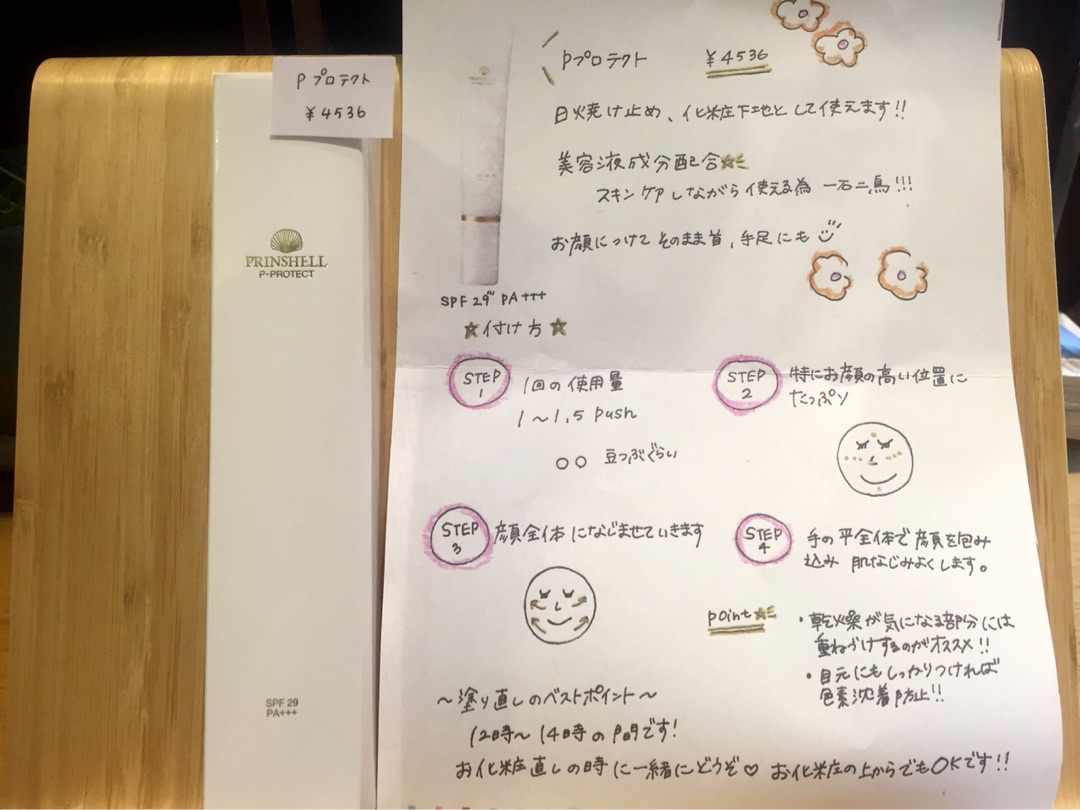 Pプロテクト
¥4536
PRINSHELL
P-PROTECT
SPF 29
PA+++
Pプロテクト ¥4536
日火焼け止め、化粧下地として使えます!!
美容液成分配合
スキンケアしながら使える為 一石二鳥!!!
お顔につけて そのまま首、手足にも
SPF 29 PA+++
☆付け方☆
STEP 1
1回の使用量
1〜1.5 push
○○ 豆つぶぐらい
STEP 2
特にお顔の高い位置に
たっぷり
STEP 3
顔全体になじませていきます
STEP 4
手の平全体で顔を包み
込み 肌なじみよくします。
point☆
・乾燥が気になる部分には
重ねづけするのがオススメ!!
・目元にもしっかりつければ
色素沈着防止!!
〜塗り直しのベストポイント〜
12時〜14時の間です!
お化粧直しの時に一緒にどうぞ♡ お化粧の上からでもOKです!!